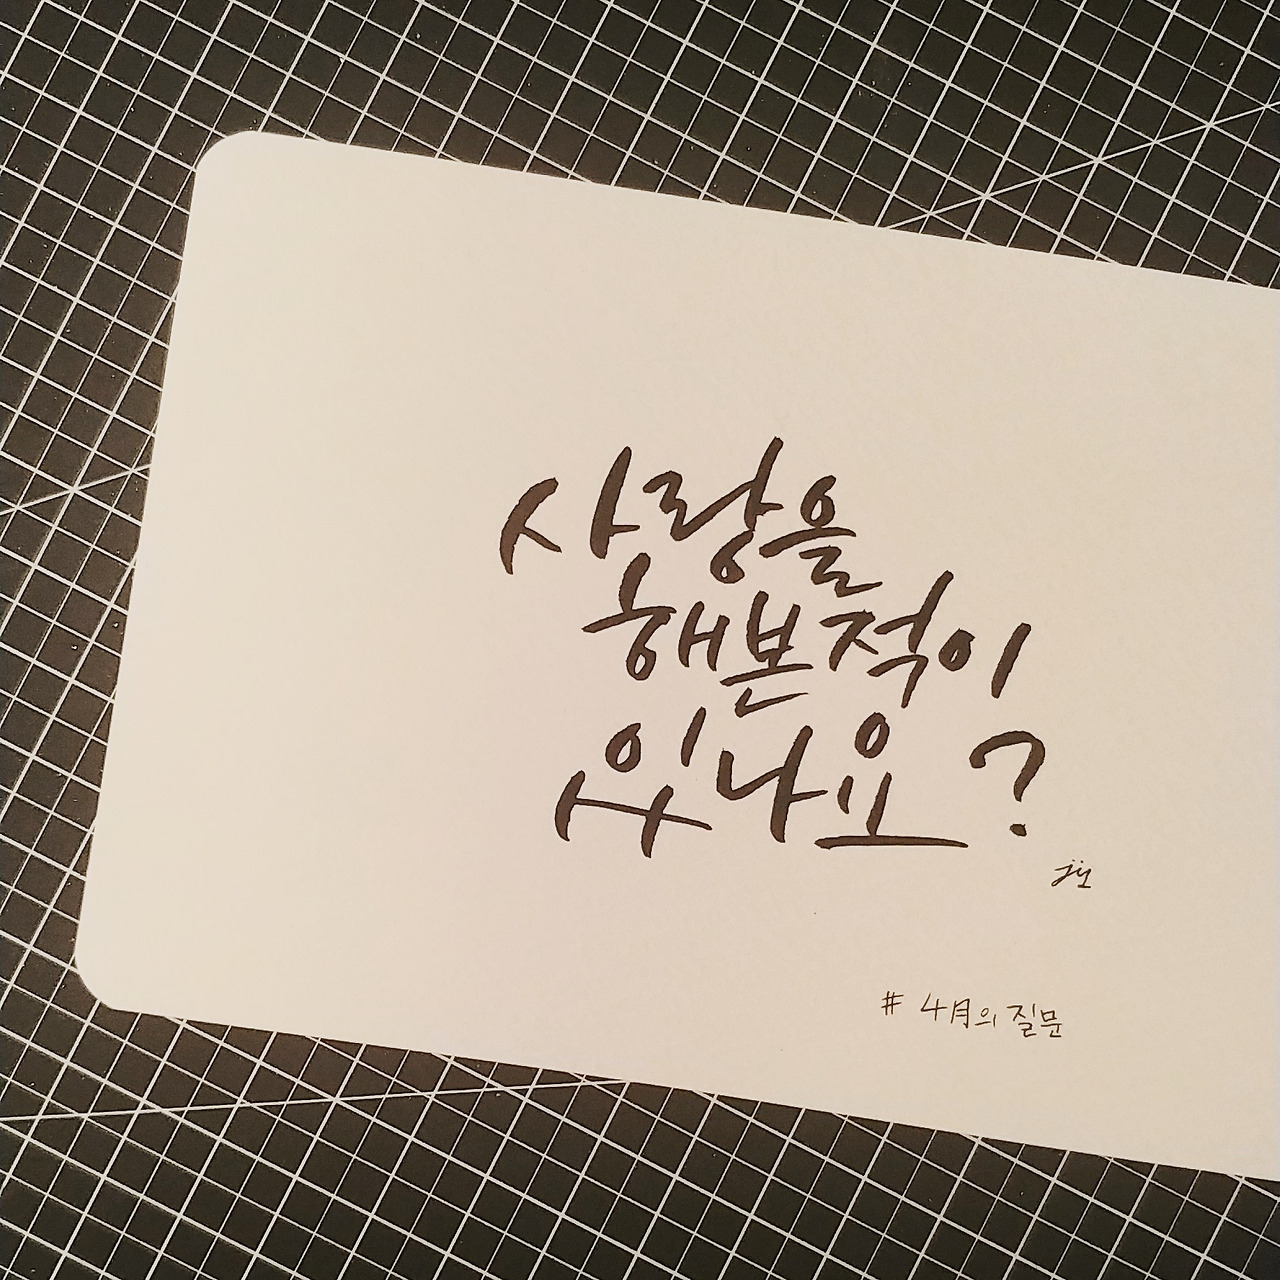 사랑을
해본적이
있나요?
# 4月의 질문